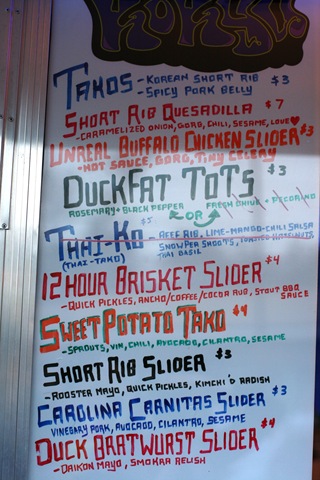 TAKOS - KOREAN SHORT RIB $3
- SPICY PORK BELLY
SHORT RIB QUESADILLA $7
- CARAMELIZED ONION, GORG, CHILI, SESAME, LOVE
UNREAL BUFFALO CHICKEN SLIDER $3
- HOT SAUCE, GORG, TINY CELERY
DUCKFAT TOTS $3
ROSEMARY + BLACK PEPPER FRESH CHIVE + PECORINO
OR
THAI-KO $5 - BEEF RIB, LIME-MANGO-CHILI SALSA
(THAI-TAKO) SNOW PEA SHOOTS, TOASTED HAZELNUTS
THAI BASIL
12 HOUR BRISKET SLIDER $4
- QUICK PICKLES, ANCHO/COFFEE/COCOA RUB, STOUT BBQ
SAUCE
SWEET POTATO TAKO $4
- SPROUTS, VIN, CHILI, AVOCADO, CILANTRO, SESAME
SHORT RIB SLIDER $3
- ROOSTER MAYO, QUICK PICKLES, KIMCHI'D RADISH
CAROLINA CARNITAS SLIDER $3
VINEGARY PORK, AVOCADO, CILANTRO, SESAME
DUCK BRATWURST SLIDER $4
- DAIKON MAYO, SMOKRA RELISH